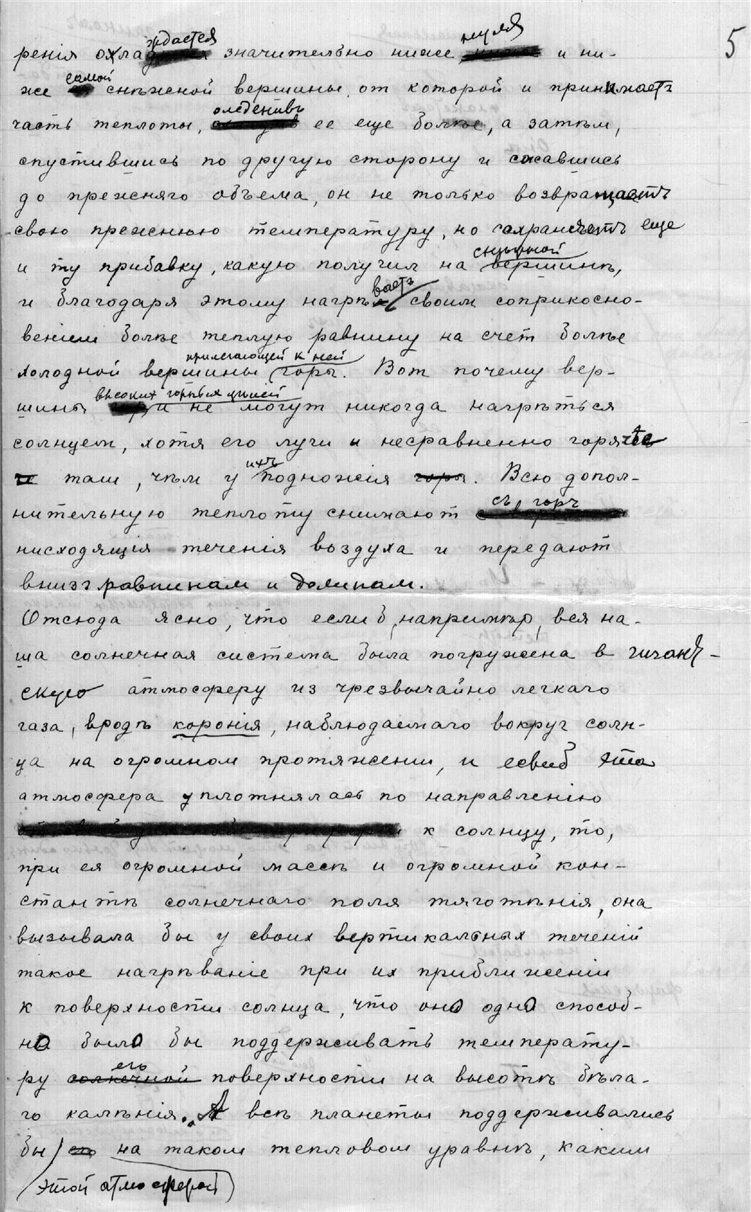 5
ренія охлаждается значительно ниже нуля и ни-
же самой снѣжной вершины, от которой и принимаетъ
часть теплоты, оледенивъ ее еще болѣе, а затѣм,
спустившись по другую сторону и сжавшись
до прежняго объема, он не только возвращаетъ
свою прежнюю температуру, но сохраняетъ еще
и ту прибавку, какую получил на вершинѣ,
и благодаря этому нагрѣваетъ своим соприкосно-
вением болѣе теплую равнину на счет болѣе
холодной прилегающей к ней вершины горы. Вот почему вер-
шины высоких горных цѣпей и не могут никогда нагрѣться
солнцем, хотя его лучи и несравненно горячѣе
там, чѣм у ихъ подножія. Всю допол-
нительную теплоту снимают съ горъ
нисходящія теченія воздуха и передают
вниз равнинам и долинам.
Отсюда ясно, что если б, напримѣр, вся на-
ша солнечная система была погружена в гигант-
скую атмосферу из чрезвычайно легкаго
газа, вродѣ коронія, наблюдаемаго вокруг солн-
ца на огромном протяжении, и если б эта
атмосфера уплотнялась по направленію
к солнцу, то,
при ея огромной массѣ и огромной кон-
стантѣ солнечнаго поля тяготѣнія, она
вызывала бы у своих вертикальных теченій
такое нагрѣваніе при их приближеніи
к поверхности солнца, что оно одно способ-
но было бы поддерживать температу-
ру его поверхности на высотѣ бѣла-
го калѣнія. А всѣ планеты поддерживались
бы этой атмосферой на таком тепловом уравнѣ, каким